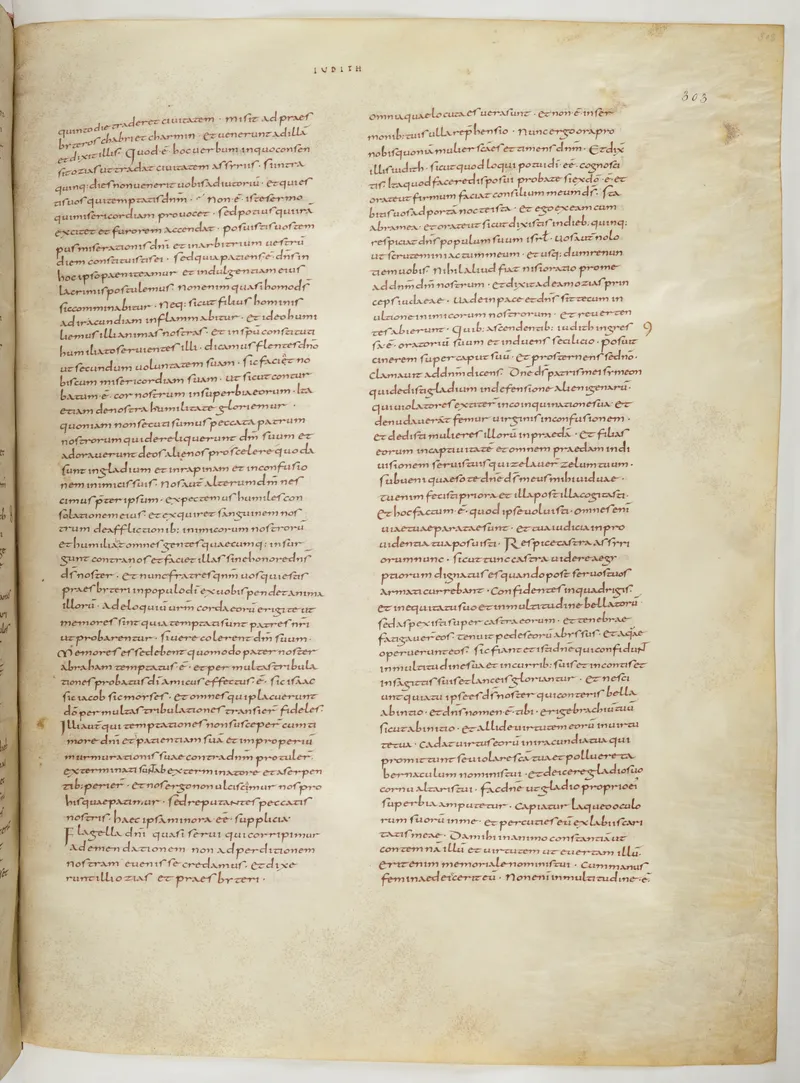 IUDITH
303
quinto die traderet ciuitatem · misit ad praes
byteros chabri et charmin · Et uenerunt ad illā
et dixit illis · Quod ē hoc uerbum in quo consen
sit ozias ut tradat ciuitatem assyriis · si intra
quinq: dies non uenerit uobis adiutoriū · et qui es
tis uos qui temptatis dnm · Non ē iste sermo
qui misericordiam prouocet · sed potius qui irā
excitet et furorem accendat · posuistis uos tem
pus miserationis dnī et in arbitrium uestrū
diem constituistis ei · sed quia patiens ē dns in
hoc ipso paeniteamur et indulgentiam eius
lacrimis postulemus · non enim quasi homo ds
sic comminabitur · Neq: sicut filius hominis
ad iracundiam inflammabitur · et ideo humi
liemus illi animas nostras · et in spū constituti
humiliato seruientes illi · dicamus flentes dnō
ut secundum uoluntatem suam · sic faciat no
biscum misericordiam suam · ut sicut contur
batum ē cor nostrum in superbia eorum · Ita
etiam de nostra humilitate gloriemur ·
quoniam non secuti sumus peccata patrum
nostrorum qui dereliquerunt dm suum et
adorauerunt deos alienos pro scelere quo da
ti sunt in gladium et in rapinam et in confusio
nem inimicis suis · Nos aut alterum dm nes
cimus pter ipsum · expectemus humiles con
solationem eius · et exquiret sanguinem nos
trum de afflictionib: inimicorum nostrorū
et humiliat omnes gentes quaecumq: insur
gunt contra nos et faciet illas sine honore dns
ds noster · et nunc fratres qnm uos qui estis
praesbyteri in populo dī ex uobis pendet anima
illorū · ad eloquiū urm corda eorū erigite ut
memores sint quia temptati sunt patres nrī
ut probarentur · si uere colerent dm suum ·
Memores esse debent quomodo pater noster
abraham temptatus ē · et per multas tribula
tiones probatus dī amicus effectus ē · sic isaac
sic iacob sic moyses · et omnes qui placuerunt
dō per multas tribulationes transier fideles
Illi aut qui temptationes non susceper cum ti
more dnī et patientiam suā et improperiū
murmurationis suae contra dnm protuler
exterminati sunt ab exterminatore et a serpen
tib: perier · et nos ergo non ulciscimur nos pro
his quae patimur · sed reputantes peccatis
nostris · haec ipsa minora eē supplicia ·
Flagella dnī quasi serui qui corripimur
ad emendationem non ad perditionem
nostram euenisse credamus · et dixe
runt illi ozias et praesbyteri ·
omnia quae locuta es uera sunt · et non ē in ser
monib: tuis ulla rephensio · Nunc ergo ora pro
nobis quoniā mulier scā es et timens dnm · Et dix
illis iudith · sicut quod loqui potui dī eē cognosci
tis · Ita quod facere disposui probate si ex dō ē et
orate ut firmum faciat consilium meum ds · sta
bitis uos ad portā nocte ista · et ego exeam cum
abra mea · et orate ut sicut dixistis in dieb: quinq:
respiciat dns populum suum isrl · uos aut nolo
ut scrutemini actum meum · et usq: dum renun
tiem uobis nihil aliud fiat nisi oratio pro me
ad dnm dm nostrum · et dixit ad eam ozias prin
ceps iudaeae · uade in pace et dns sit tecum in
ultione inimicorum nostrorum · et reuerten
tes abierunt · Quib: ascendentib: iudith ingres
9
sa ē · oratoriū suum et induens se cilicio · posuit
cinerem super caput suū · et prosternens se dnō ·
clamauit ad dnm dicens · Dnē ds patris mei symeon
qui dedisti gladium in defensione alienigenarū ·
qui uiolatores exciter in coinquinatione sua et
denudauerāt femur uirginis in confusionem ·
et dedisti mulieres illorū in praedā · et filias
eorum in captiuitatē et omnem praedam in di
uisionem seruis tuis qui zelauer zelum tuum ·
subueni quaeso te dnē ds meus mihi uiduae ·
tu enim fecisti priora et illa post illa cogitasti ·
et hoc factum ē · quod ipse uoluisti · omnes eni
uiae tuae paratae sunt · et tua iudicia in pro
uidentia tua posuisti · Respice castra assyri
orum nunc · sicut tunc castra uidere aegy
ptiorum dignatus es quando post seruos tuos
armati currebant · Confidentes in quadrigis
et in equitatu suo et in multitudine bellatorū
sed aspexisti super castra eorum · et tenebrae
fatigauer eos · tenuit pedes eorū abyssus · et aquae
operuerunt eos · sic fiant et isti dnē qui confidunt
in multitudine sua et in currib: suis et in contis et
in sagittis suis et lanceis gloriantur · et nesci
unt quia tu ipse es ds noster qui conteris bella
ab initio · et dns nomen ē tibi · erige brachiū tuū
sicut ab initio · et allide uirtutem eorū in uirtu
te tua · cadat uirtus eorū in iracundia tua qui
promittunt se uiolare scā tua et polluere ta
bernaculum nominis tui · et deicere gladio suo
cornu altaris tui · fac dnē ut gladio proprio ei
superbia amputetur · capiatur laqueo oculo
rum suorū in me · et percuties eū ex labiis cari
tatis meae · Da mihi in animo constantiā ut
contemnā illū et uirtutem ut euertam illū ·
Erit enim memoriale nominis tui · cum manus
feminae deiecerit eū · Non enī in multitudine ē